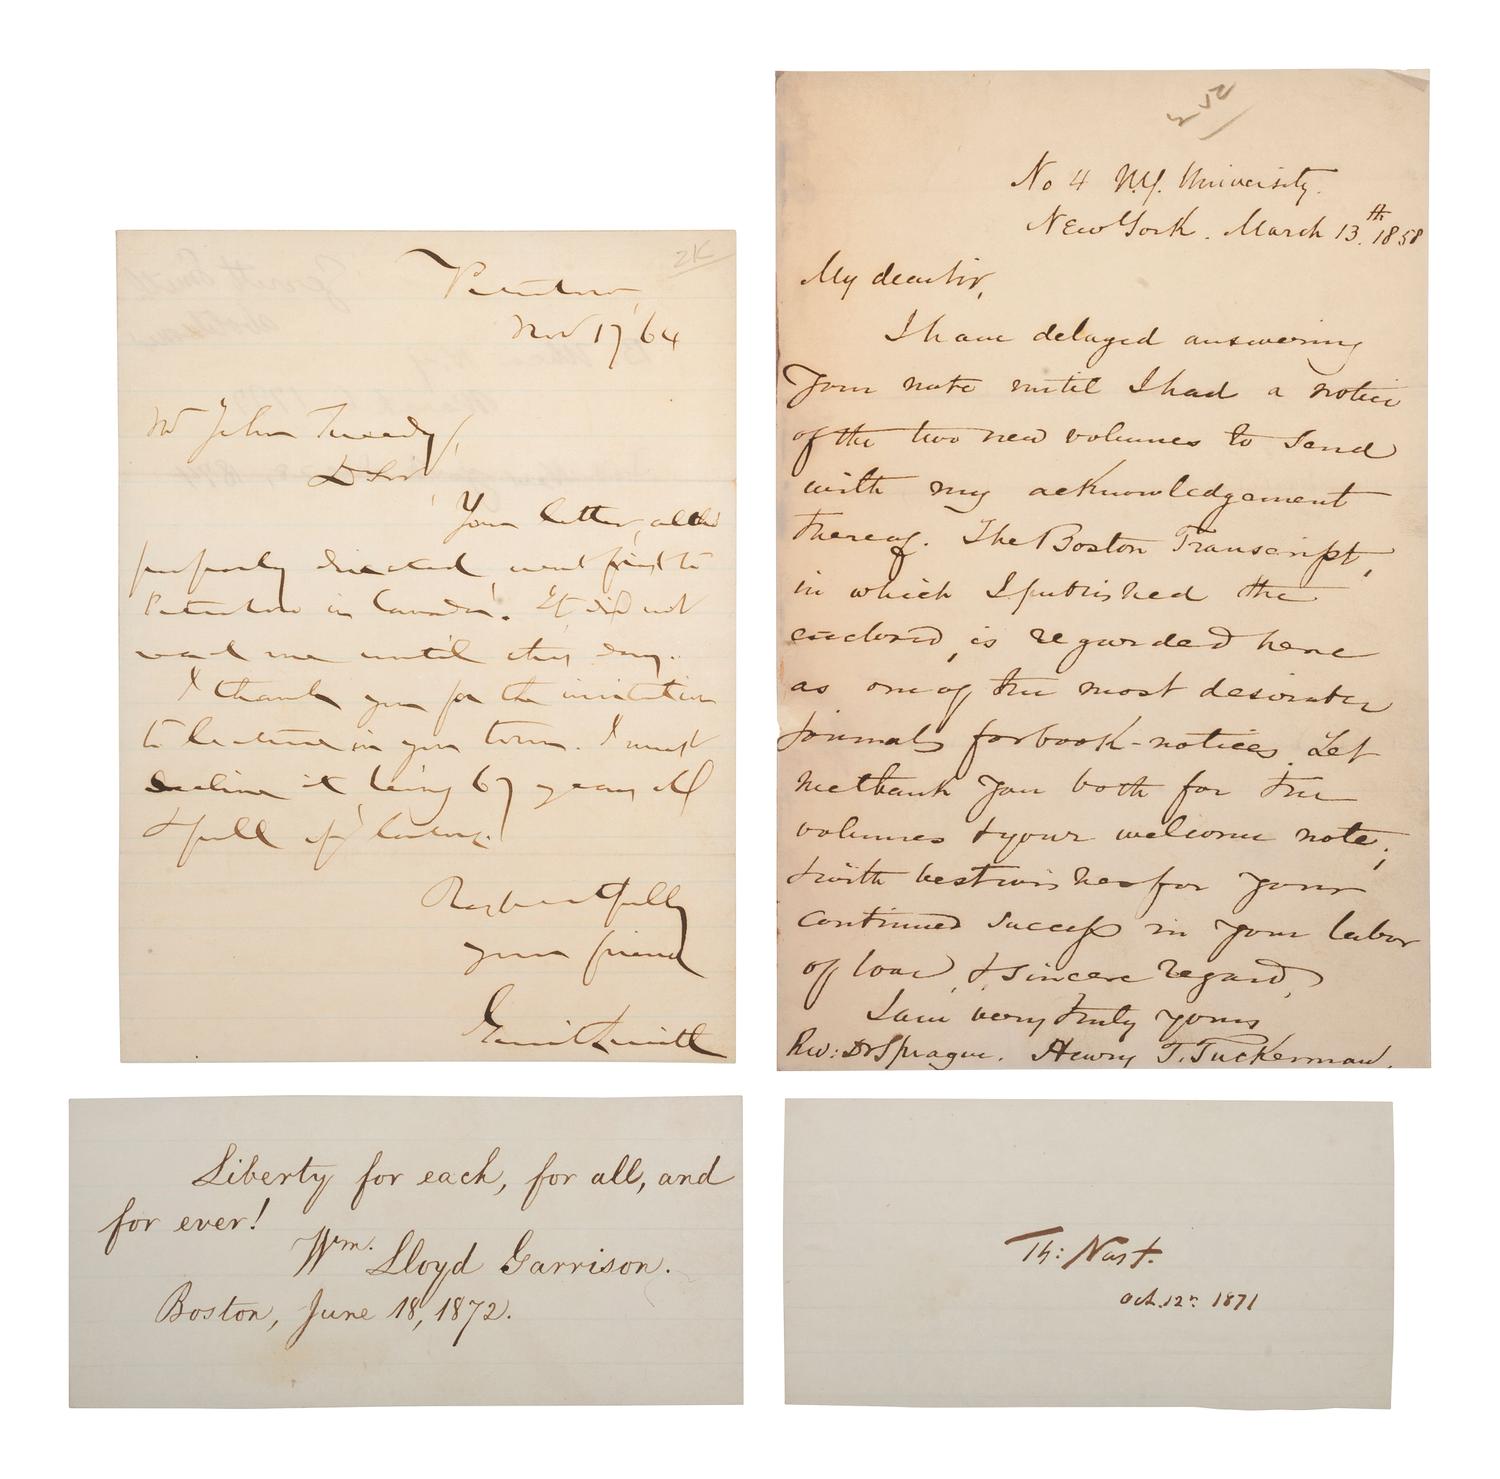 2K
Peterboro,
Nov 17, '64
Mr John Tweedy,
D Sir
Your letter, altho
properly directed, went first to
Peterboro in Canada. It did not
reach me until this day.
I thank you for the invitation
to lecture in your town. I must
decline it, being 67 years old
& full of labors.
Respectfully
your friend
Gerrit Smith
No 4 N.Y. University.
New York. March 13.th 1858
My dear Sir,
I have delayed answering
your note until I had a notice
of the two new volumes to send
with my acknowledgement
thereof. The Boston Transcript,
in which I published the
enclosed, is regarded here
as one of the most desirable
journals for book-notices. Let
me thank you both for the
volumes & your welcome note;
& with best wishes for your
continued success in your labor
of love, & sincere regard,
I am very truly yours
Rev: Dr Sprague. Henry T. Tuckerman.
Liberty for each, for all, and
for ever!
Wm. Lloyd Garrison.
Boston, June 18, 1872.
Th: Nast.
Oct. 12th 1871